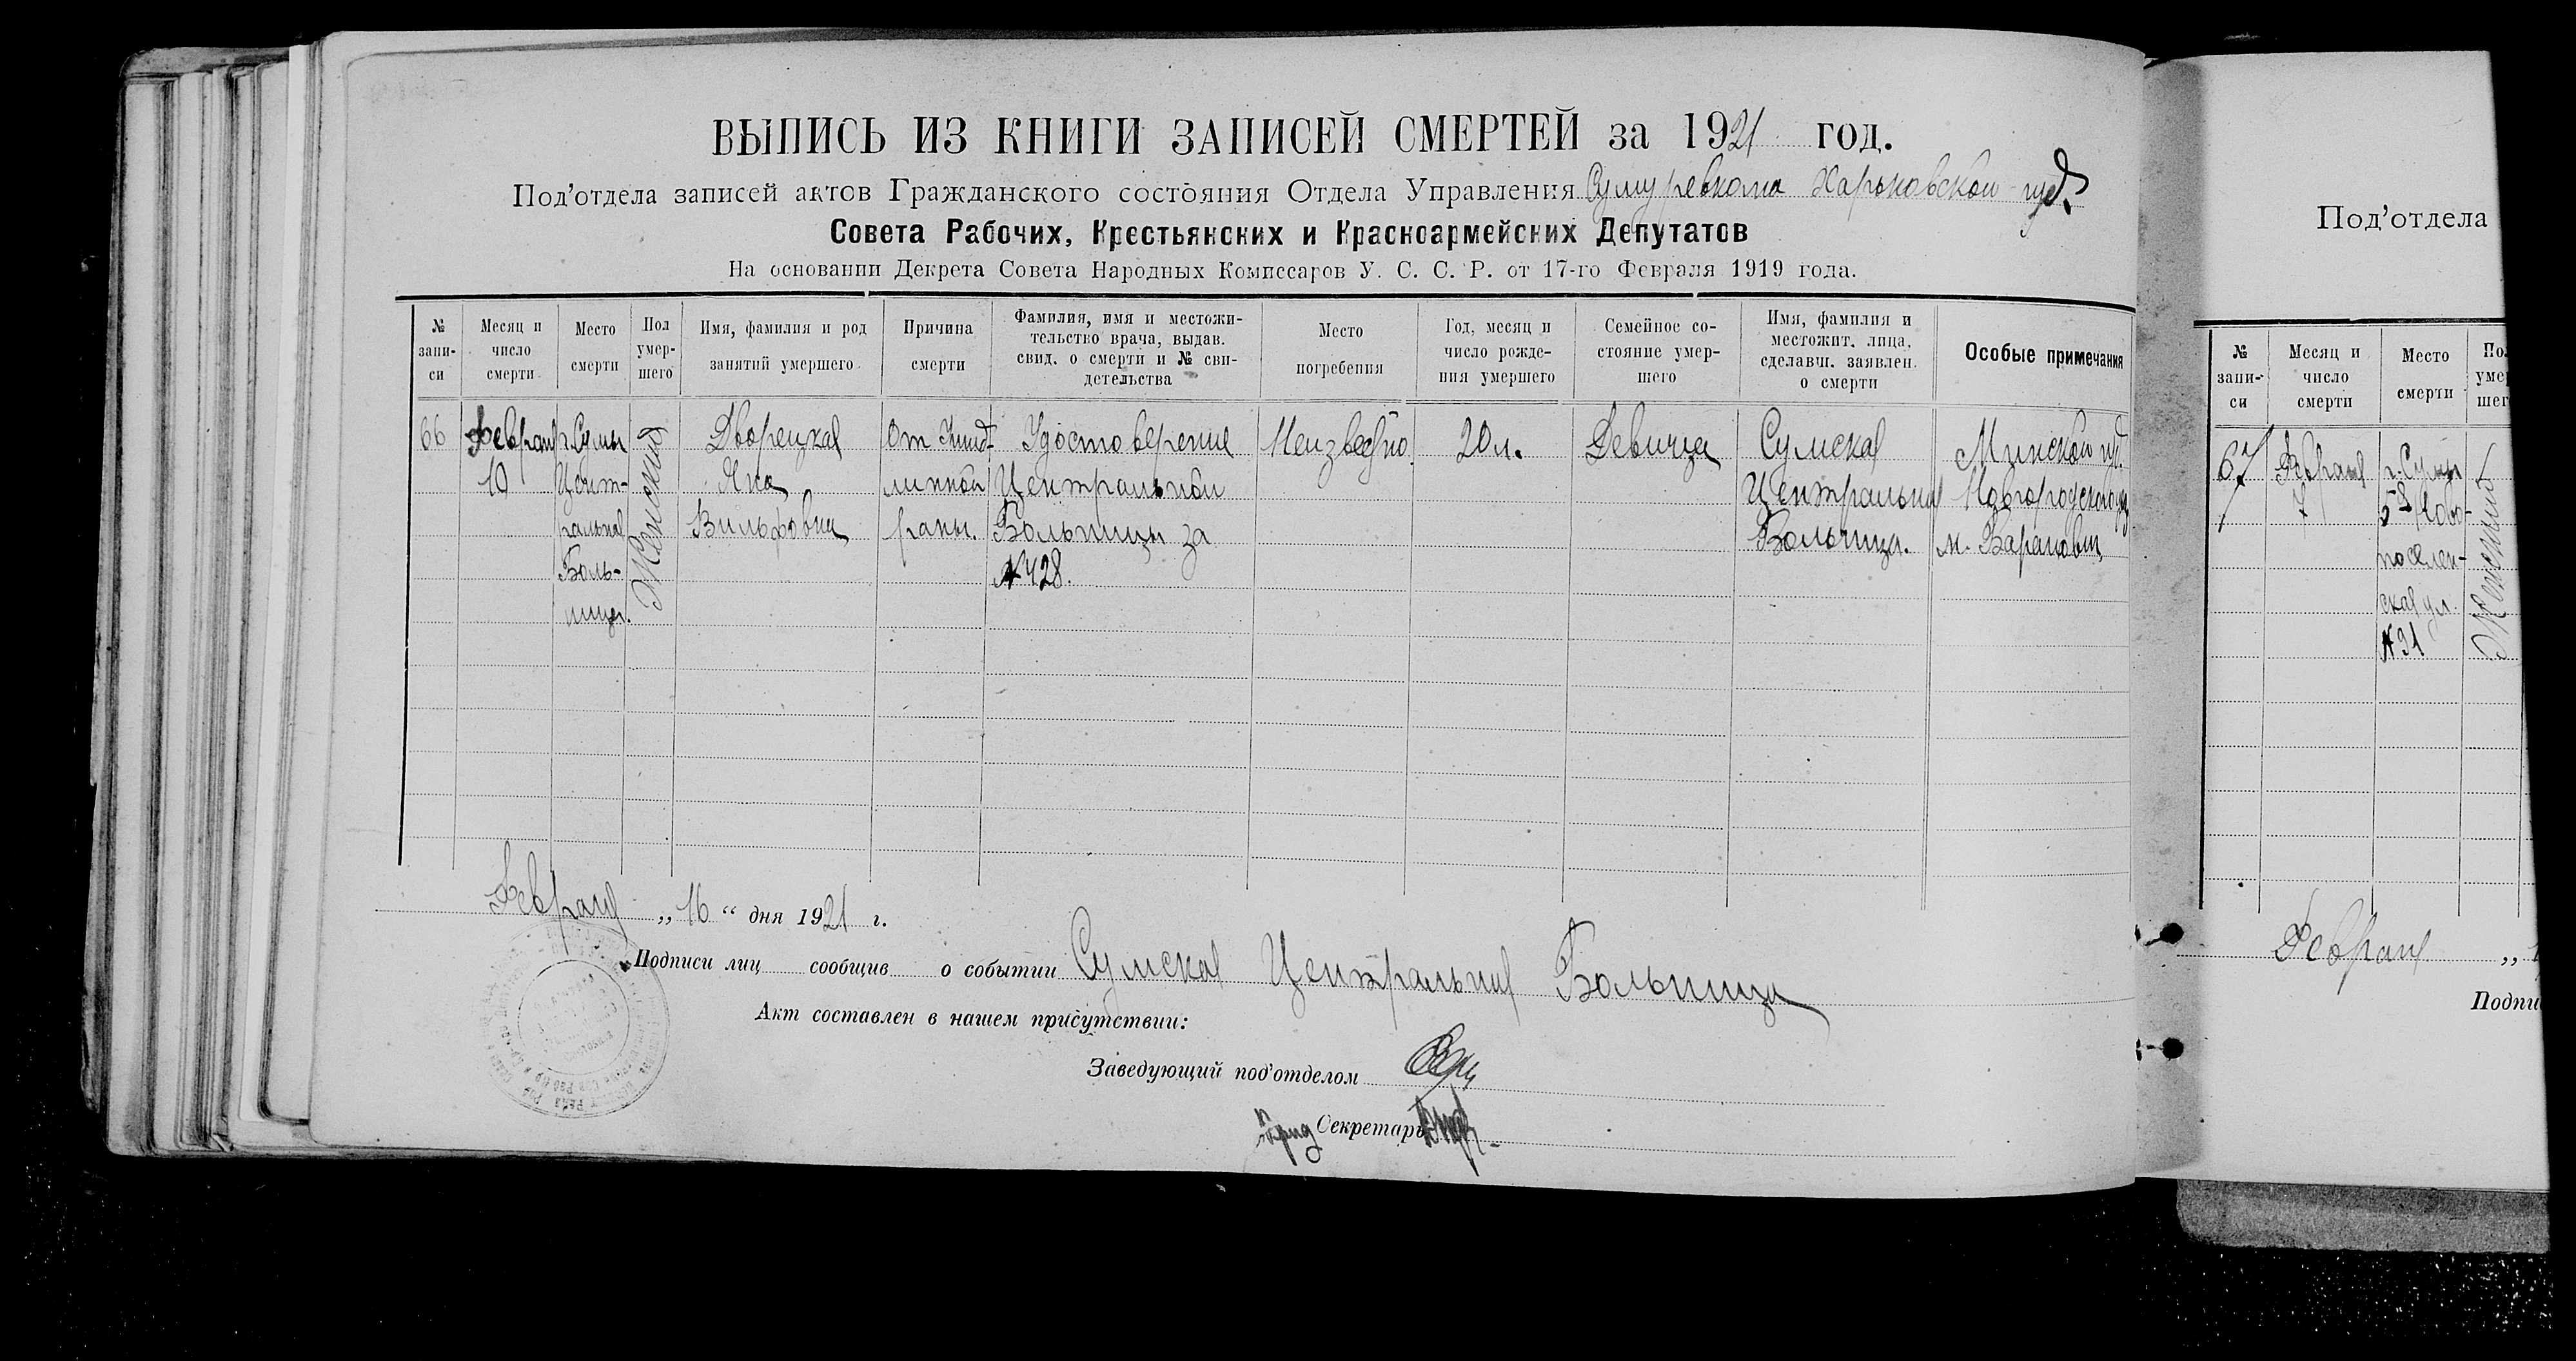 ВЫПИСЬ ИЗ КНИГИ ЗАПИСЕЙ СМЕРТЕЙ за 1921 год.
Под'отдела записей актов Гражданского состояния Отдела Управления Сумуревкома Харьковской губ.
Совета Рабочих, Крестьянских и Красноармейских Депутатов
На основании Декрета Совета Народных Комиссаров У. С. С. Р. от 17-го Февраля 1919 года.
№ запи-си
Месяц и число смерти
Место смерти
Пол умер-шего
Имя, фамилия и род занятий умершего
Причина смерти
Фамилия, имя и местожи-тельство врача, выдав. свид. о смерти и № сви-детельства
Место погребения
Год, месяц и число рожде-ния умершего
Семейное со-стояние умер-шего
Имя, фамилия и местожит. лица, сделавш. заявлен. о смерти
Особые примечания
66
Февраля
10
г. Сумы
Цент-
ральная
Боль-
ница.
Женский
Дворецкая
Яна
Вильфовна
От
раны.
Удостоверение
Центральной
Больницы за
№ 428.
Неизвестно.
20 л.
Девица
Сумская
Центральная
Больница.
Минской губ.
м. Баранович
Февраля „16“ дня 1921 г.
Подписи лиц сообщив о событии Сумская Центральная Больница
Акт составлен в нашем присутствии:
Заведующий под'отделом
Секретарь
Под'отдела
№ запи-си
Месяц и число смерти
Место смерти
67
Февраля
7
г. Сумы
5я Ново-
поселен-
ская ул.
№ 31
Женский
Февраля „